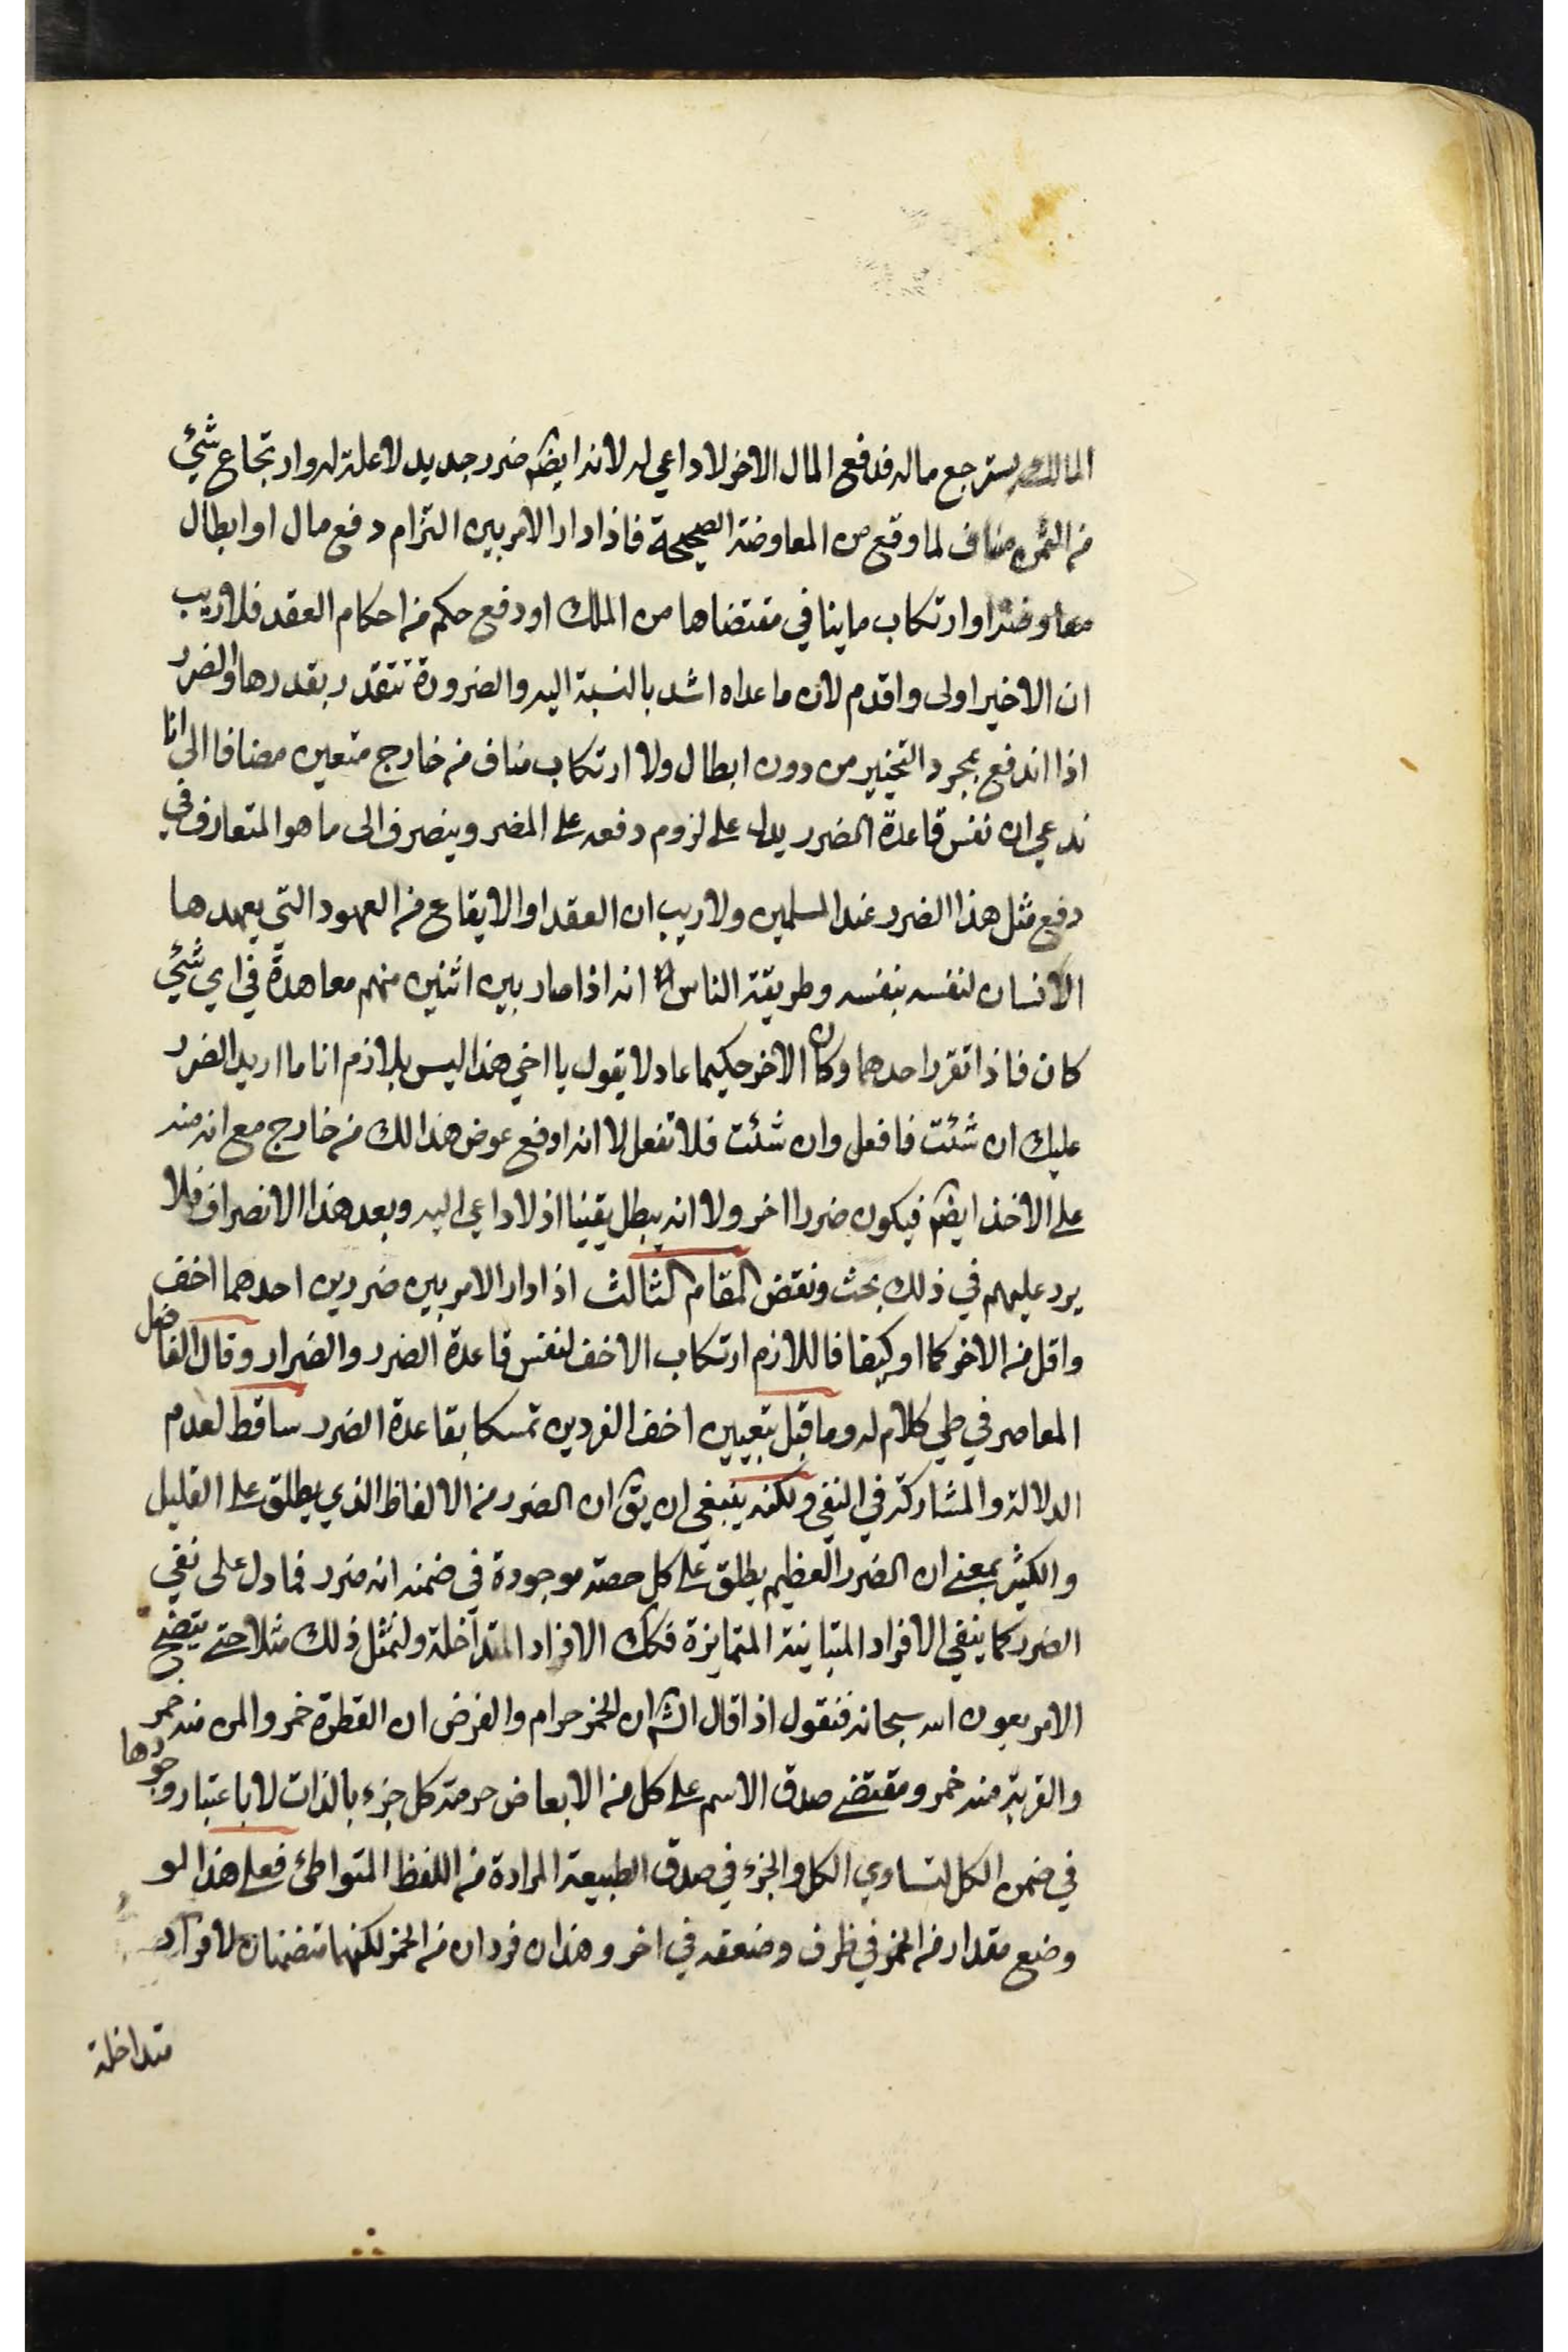 المالك يسترجع ماله فدفع المال الاخر لا داعي له لانه ايضم ضرر جديد لا علة له وارتجاع شئ
من الثمن مناف لما وقع من المعاوضة الصحيحة فاذا دار الامر بين التزام دفع مال او ابطال
معاوضة او ارتكاب ما ينافي مقتضاها من الملك او دفع حكم من احكام العقد فلا ريب
ان الاخير اولى واقدم لان ما عداه اشد بالنسبة اليه والضرورة تتقدر بقدرها والضرر
اذا اندفع بمجرد التخيير من دون ابطال ولا ارتكاب مناف من خارج متعين مضافا الى انا
ندعي ان نفس قاعدة الضرر يدل على لزوم دفعه على المضر وينصرف الى ما هو المتعارف في
دفع مثل هذا الضرر عند المسلمين ولا ريب ان العقد او الايقاع من العهود التي يعهدها
الانسان لنفسه بنفسه وطريقة الناس انه اذا صار بين اثنين منهم معاهدة في اي شئ
كان فاذا تقرر احدهما وكان الاخر حكيما عادلا يقول يا اخي هذا ليس بلازم انا ما اريد الضرر
عليك ان شئت فافعل وان شئت فلا تفعل لا انه ادفع عوض هذا لك من خارج مع انه منه
على الاخذ ايضم فيكون ضررا اخر ولا انه يبطل يقينا اذ لا داعي اليه وبعد هذا الانصراف فلا
يرد عليهم في ذلك بحث ونقض المقام الثالث اذا دار الامر بين ضررين احدهما اخف
واقل من الاخر كما او كيفا فاللازم ارتكاب الاخف لنفس قاعدة الضرر والضرار وقال الفاضل
المعاصر في طي كلام له وما قيل بتعيين اخف الفردين تمسكا بقاعدة الضرر ساقط لعدم
الدلالة والمشاركة في النفي ولكنه ينبغي ان يق ان الضرر من الالفاظ الذي يطلق على القليل
والكثير بمعنى ان الضرر العظيم يطلق على كل حصة موجودة في ضمنه انه ضرر فما دل على نفي
الضرر كما ينفي الافراد المتباينة المتمايزة فكك الافراد المتداخلة ولنمثل ذلك مثلا حتى يتضح
الامر بعون الله سبحانه فنقول اذا قال الشم ان الخمر حرام والفرض ان القطرة خمر والمن منه خمر
والقربة منه خمر ومقتضى صدق الاسم على كل من الابعاض حرمة كل جزء بالذات لا باعتبار وجودها
في ضمن الكل لتساوي الكل والجزء في صدق الطبيعة المرادة من اللفظ المتواطئ فعلى هذا لو
وضع مقدار من الخمر في ظرف وضعفه في اخر وهذان فردان من الخمر لكنهما متضمنان لافراد
متداخلة